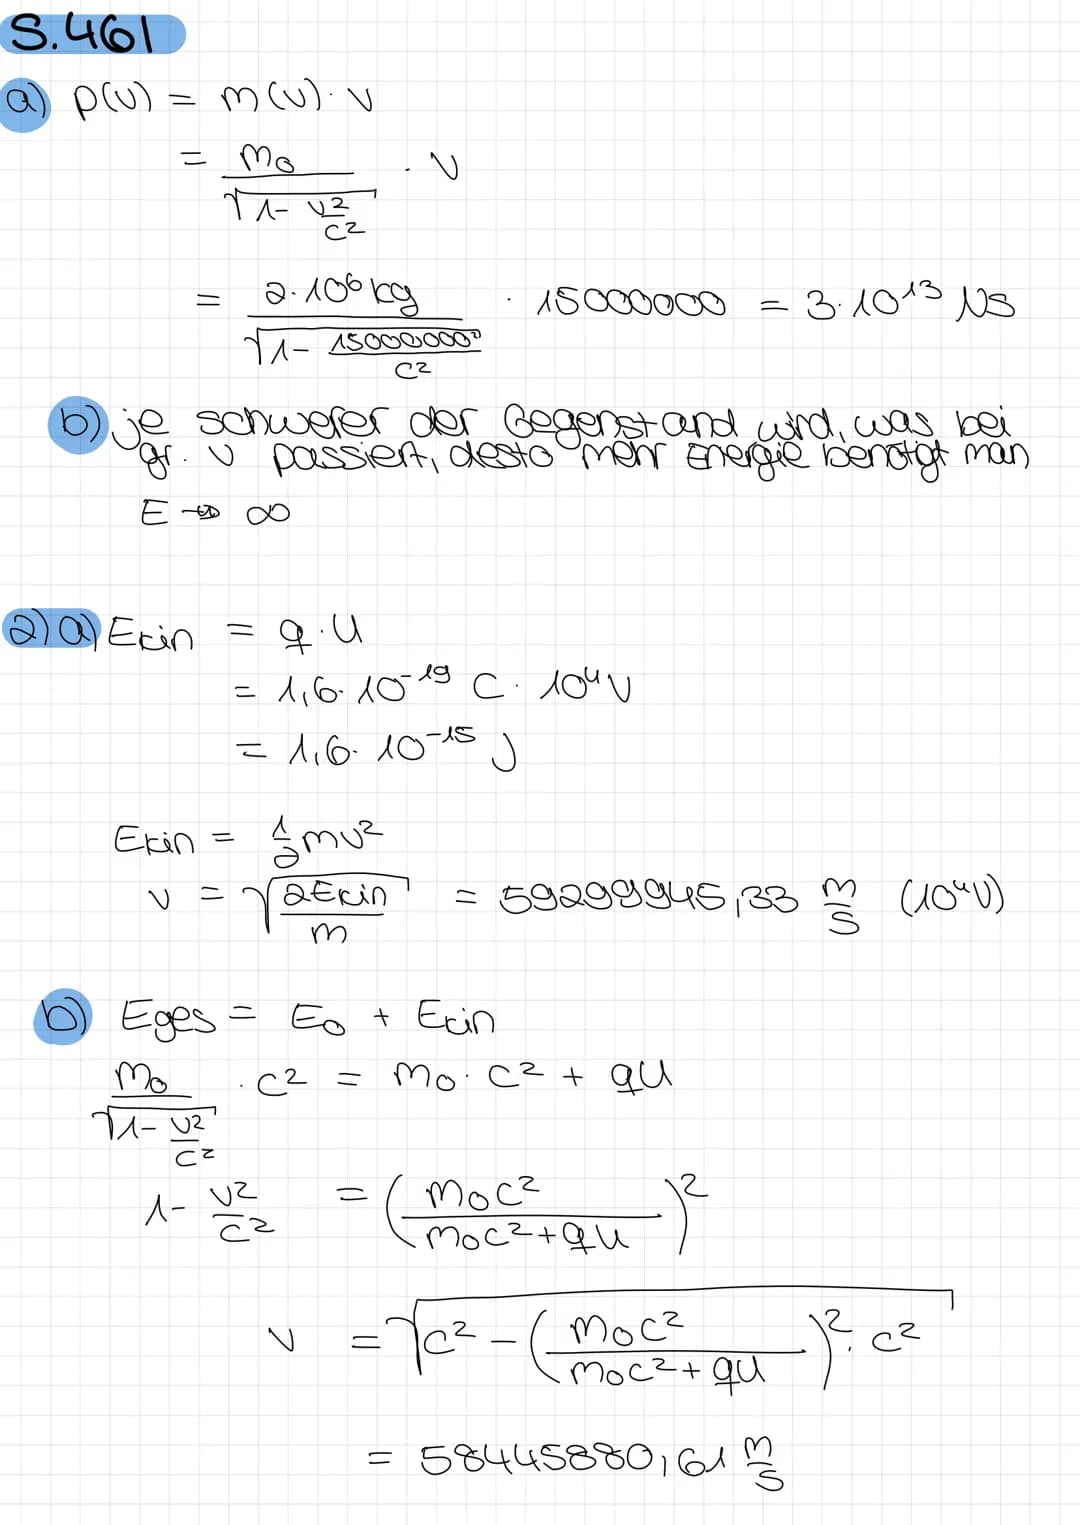 S.461
a) p(v) = m(v) · v
= m₀ / √(1 - v²/c²) · v
= 2·10⁶ kg / √(1 - 15000000²/c²) · 15000000 = 3·10¹³ Ns
b) je schwerer der Gegenstand wird, was bei
gr. v passiert, desto mehr Energie benötigt man
E → ∞
2) a) Ekin = q·U
= 1,6·10⁻¹⁹ C · 10⁴ V
= 1,6·10⁻¹⁵ J
Ekin = ½mv²
v = √(2Ekin/m) = 59299945,33 m/s (10⁴V)
b) Eges = E₀ + Ekin
m₀ / √(1 - v²/c²) · c² = m₀·c² + qU
1 - v²/c² = (m₀c² / (m₀c² + qU))²
v = √(c² - (m₀c² / (m₀c² + qU))² · c²)
= 58445880,61 m/s